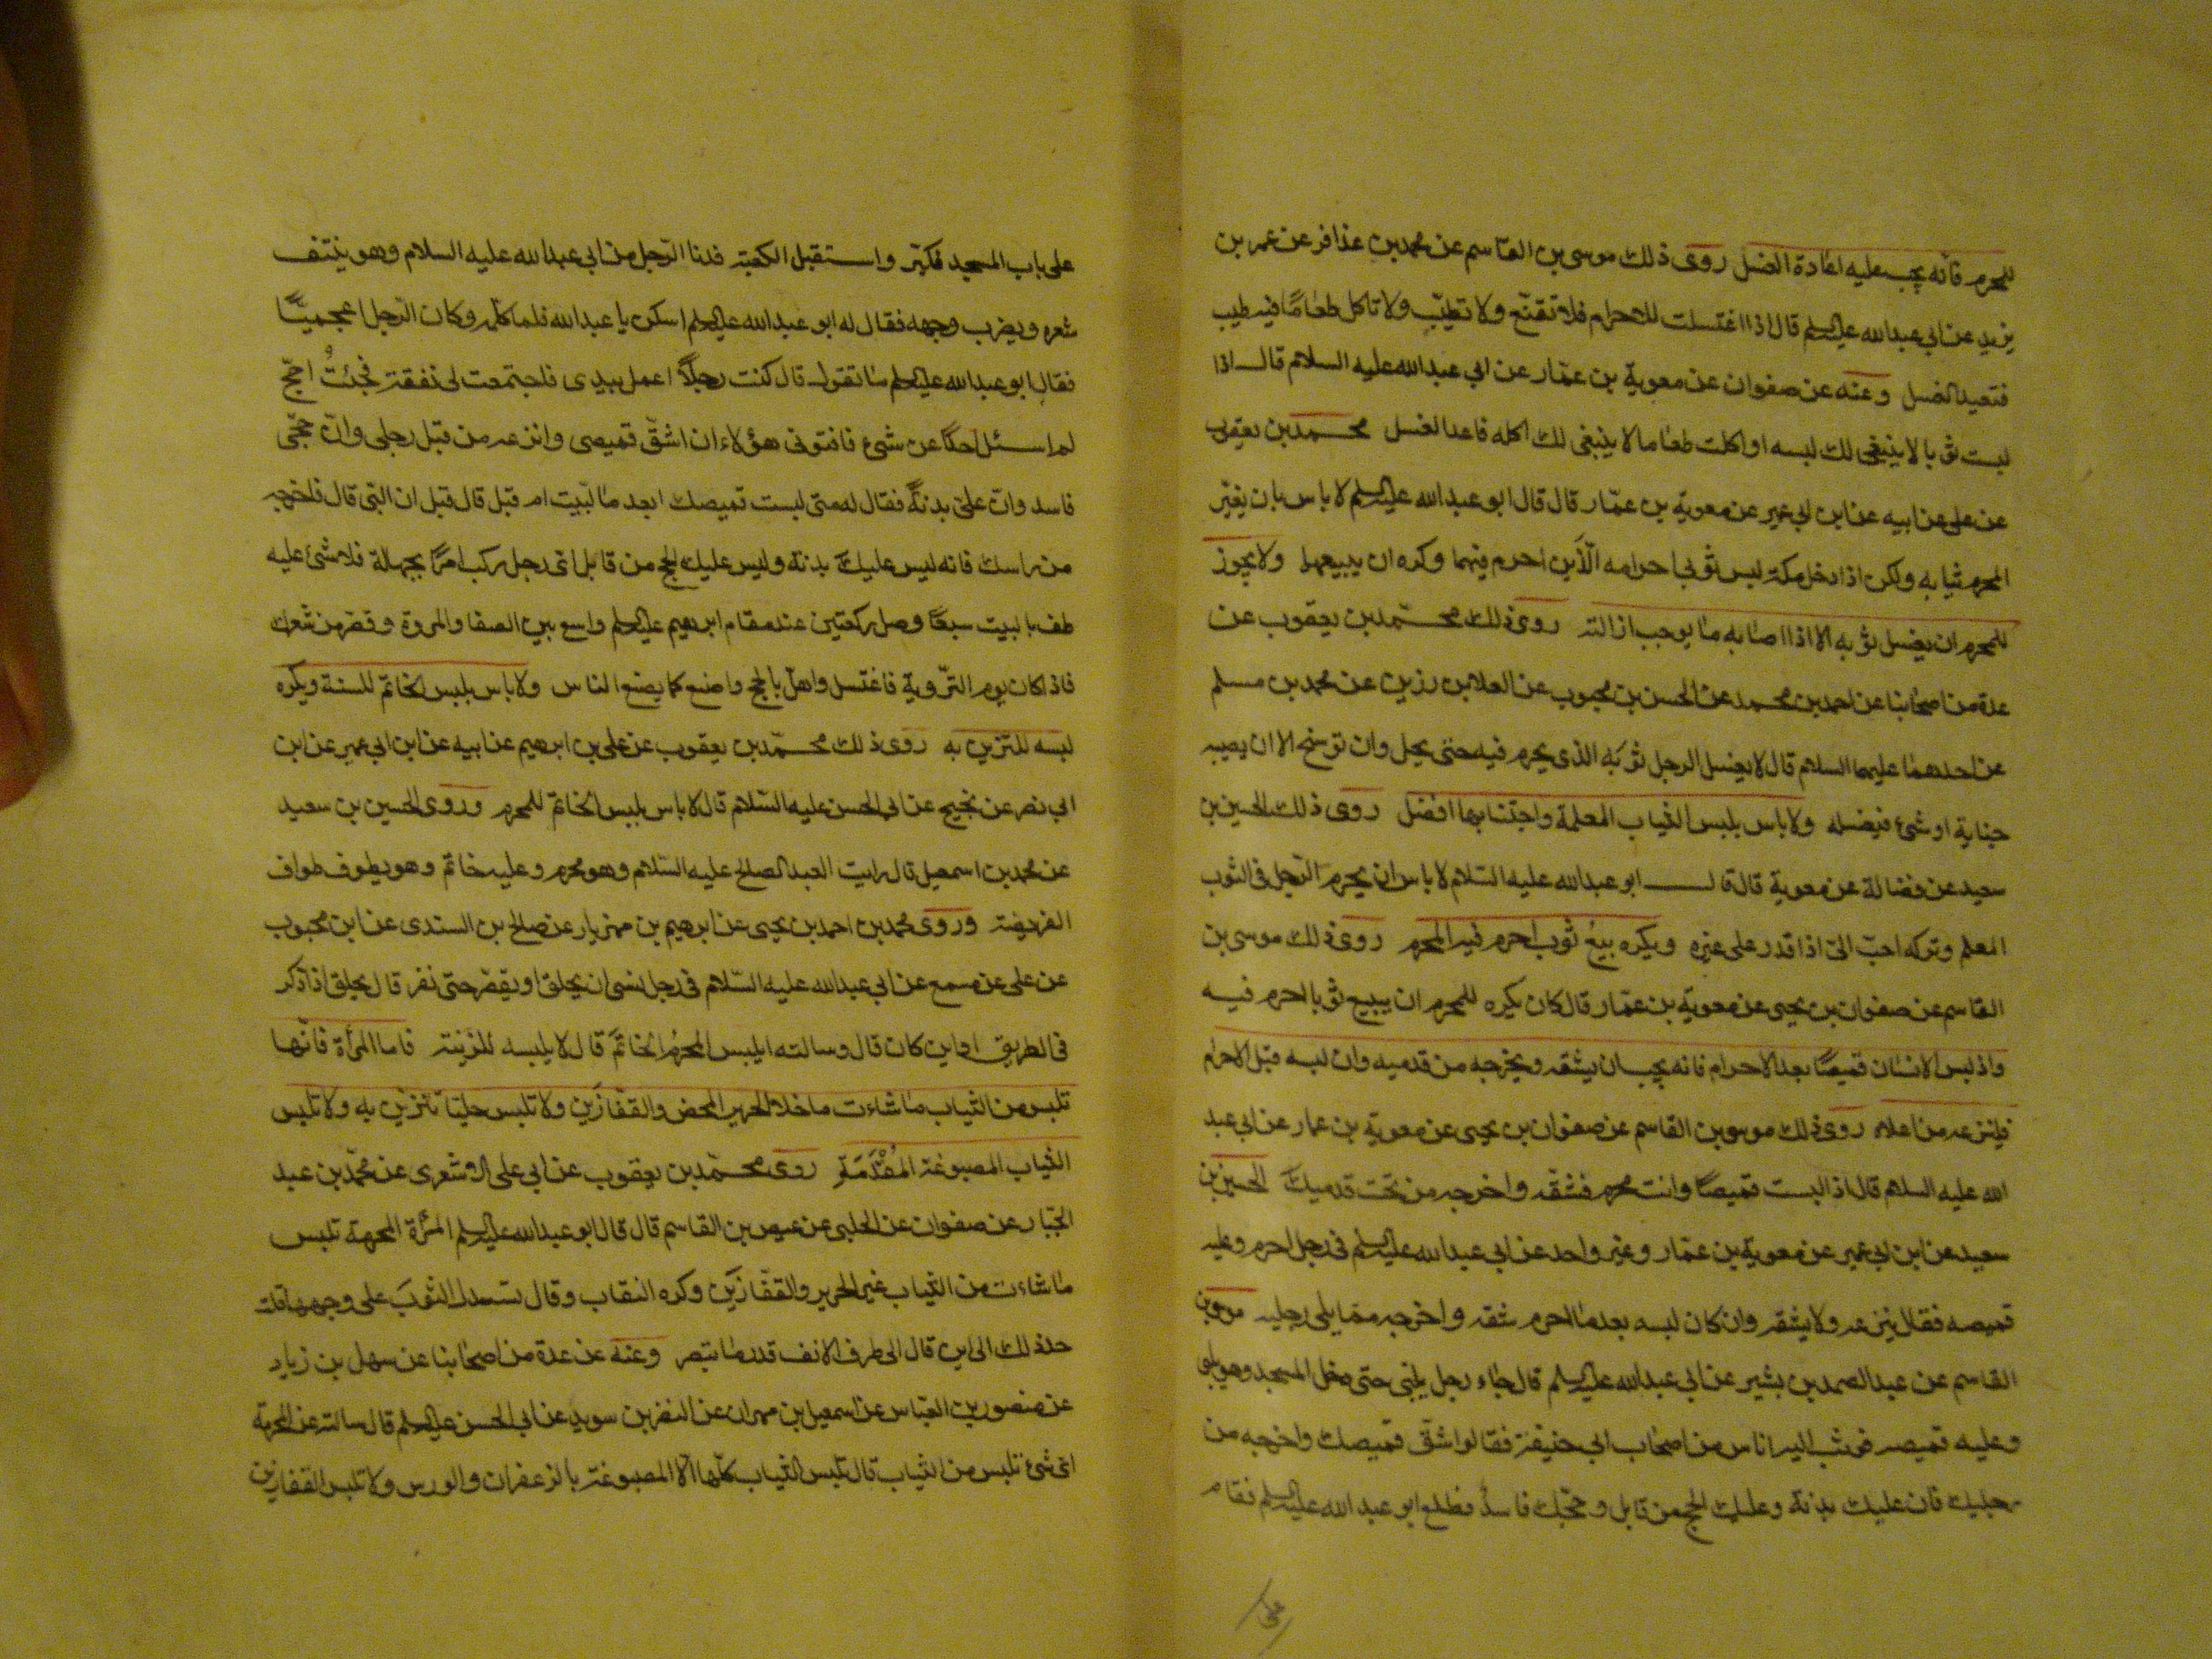 للمحرم فانه يجب عليه اعادة الغسل روى ذلك موسى بن القاسم عن محمد بن عذافر عن عمر بن
يزيد عن ابي عبد الله عليه السلم قال اذا اغتسلت للاحرام فلا تقنّع ولا تطيّب ولا تاكل طعامًا فيه طيب
فتعيد الغسل وعنه عن صفوان عن معوية بن عمّار عن ابي عبد الله عليه السلام قال اذا
لبست ثوبا لا ينبغي لك لبسه او اكلت طعاما لا ينبغي لك اكله فاعد الغسل محمد بن يعقوب
عن علي عن ابيه عن ابن ابي عمير عن معوية بن عمّار قال قال ابو عبد الله عليه السلم لا باس بان يغيّر
المحرم ثيابه ولكن اذا دخل مكة لبس ثوبي احرامه الّذَين احرم فيهما وكره ان يبيعهما ولا يجوز
للمحرم ان يغسل ثوبه الا اذا اصابه ما يوجب ازالته روى ذلك محمّد بن يعقوب عن
عدة من اصحابنا عن احمد بن محمد عن الحسن بن محبوب عن العلا بن رزين عن محمد بن مسلم
عن احدهما عليهما السلام قال لا يغسل الرجل ثوبَه الذي يحرم فيه حتى يحل وان توسّخ الا ان يصيبه
جنابة او شئ فيغسله ولا باس بلبس الثياب المعلمة واجتنابها افضل روى ذلك الحسين بن
سعيد عن فضالة عن معوية قال قال ابو عبد الله عليه السّلام لا باس ان يحرم الرّجل في الثوب
المعلم وتركه احبّ اليّ اذا قدر على غيره ويكره بيعُ ثوب احرم فيه المحرم روى ذلك موسى بن
القاسم عن صفوان بن يحيى عن معوية بن عمّار قال كان يكره للمحرم ان يبيع ثوبا احرم فيه
واذا لبس الانسان قميصًا بعد الاحرام فانه يجب ان يشقه ويخرجه من قدميه وان لبسه قبل الاحرام
فلينزعه من اعلاه روى ذلك موسى بن القاسم عن صفوان بن يحيى عن معوية بن عمار عن ابي عبد
الله عليه السلام قال اذا لبست قميصًا وانت محرم فشقّه واخرجه من تحت قدميك الحسين بن
سعيد عن ابن ابي عمير عن معوية بن عمّار وغير واحد عن ابي عبد الله عليه السلم في رجل احرم وعليه
قميصه فقال ينزعه ولا يشقه وان كان لبسه بعد ما احرم شقه واخرجه ممّا يلي رجليه موسى بن
القاسم عن عبد الصمد بن بشير عن ابي عبد الله عليه السلم قال جاء رجل يلبّي حتى دخل المسجد وهو يلبي
وعليه قميصه فوثب اليه اناس من اصحاب ابي حنيفة فقالوا شقّ قميصك واخرجه من
رجليك فان عليك بدنة وعليك الحج من قابل وحجّك فاسدٌ فطلع ابو عبد الله عليه السلم فقام
على باب المسجد فكبّر واستقبل الكعبة فدنا الرّجل من ابي عبد الله عليه السلام وهو ينتف
شعره ويضرب وجهه فقال له ابو عبد الله عليه السلم اسكن يا عبد الله فلما كلّمه وكان الرّجل اعجميًّا
فقال ابو عبد الله عليه السلم ما تقول قال كنت رجلًا اعمل بيدى فاجتمعت لي نفقة فجئتُ احجّ
لم اسئل احدًا عن شئ فافتوني هؤلاء ان اشقّ قميصى وانزعه من قبل رجلى وانّ حجّى
فاسد وانّ عليّ بدنةً فقال له متى لبست قميصك ابعد ما لبّيت ام قبل قال قبل ان البّى قال فاخرجه
من راسك فانه ليس عليك بدنة وليس عليك الحج من قابل اى رجل ركب امرًا بجهالة فلا شئ عليه
طف بالبيت سبعًا وصل ركعتين عند مقام ابرهيم عليه السلم واسع بين الصفا والمروة وقصّر من شعرك
فاذا كان يوم التّروية فاغتسل واهلّ بالحج واصنع كما يصنع الناس ولا باس بلبس الخاتم للسنة ويكره
لبسه للتّزين به روى ذلك محمّد بن يعقوب عن علي بن ابرهيم عن ابيه عن ابن ابي عمير عن ابن
ابي نصر عن نجيح عن ابي الحسن عليه السّلام قال لا باس بلبس الخاتم للمحرم وروى الحسين بن سعيد
عن محمد بن اسمعيل قال رايت العبد الصالح عليه السّلام وهو محرم وعليه خاتم وهو يطوف طواف
الفريضة وروى محمد بن احمد بن يحيى عن ابرهيم بن مهزيار عن صالح بن السندى عن ابن محبوب
عن علي عن مسمع عن ابي عبد الله عليه السّلام في رجل نسى ان يحلق او يقصّر حتى نفر قال يحلق اذا ذكر
في الطريق او اين كان قال وسالته ايلبس المحرمُ الخاتمَ قال لا يلبسه للزينة فاما المرأة فانّها
تلبس من الثياب ما شاءت ما خلا الحرير المحض والقفازَين ولا تلبس حليّا تتزيّن به ولا تلبس
الثياب المصبوغة المُفْدَمَةِ روى محمّد بن يعقوب عن ابي على الاشعرى عن محمّد بن عبد
الجبّار عن صفوان عن الحلبى عن عيص بن القاسم قال قال ابو عبد الله عليه السلم المرأة المحرمة تلبس
ما شاءت من الثياب غير الحرير والقفّازَين وكره النقاب وقال تسدل الثوبَ على وجهها قلت
حدّ ذلك الى اين قال الى طرف الانف قدر ما تبصر وعنه عن عدة من اصحابنا عن سهل بن زياد
عن منصور بن العبّاس عن اسمعيل بن مهران عن النضر بن سويد عن ابي الحسن عليه السلم قال سالته عن المحرمة
اى شئ تلبس من الثياب قال تلبس الثياب كلّها الّا المصبوغة بالزعفران والورس ولا تلبس القفازين